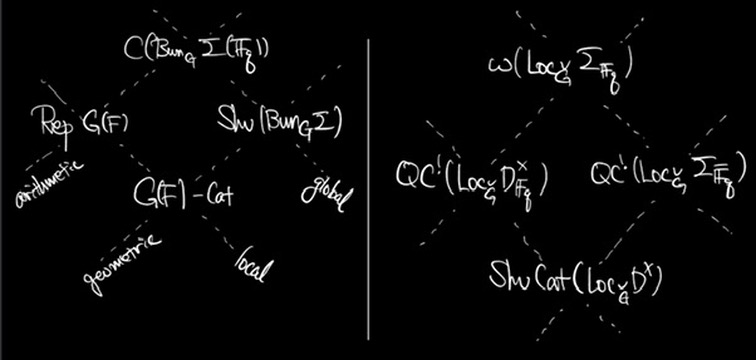 C(Bun_G Σ(𝔽_q))
Rep G(F)
Shv(Bun_G Σ)
arithmetic
G(F)-Cat
global
geometric
local
ω(Loc_Ğ Σ_𝔽_q)
QC^!(Loc_Ğ D^×_𝔽_q)
QC^!(Loc_Ğ Σ_𝔽̄_q)
ShvCat(Loc_Ğ D^×)